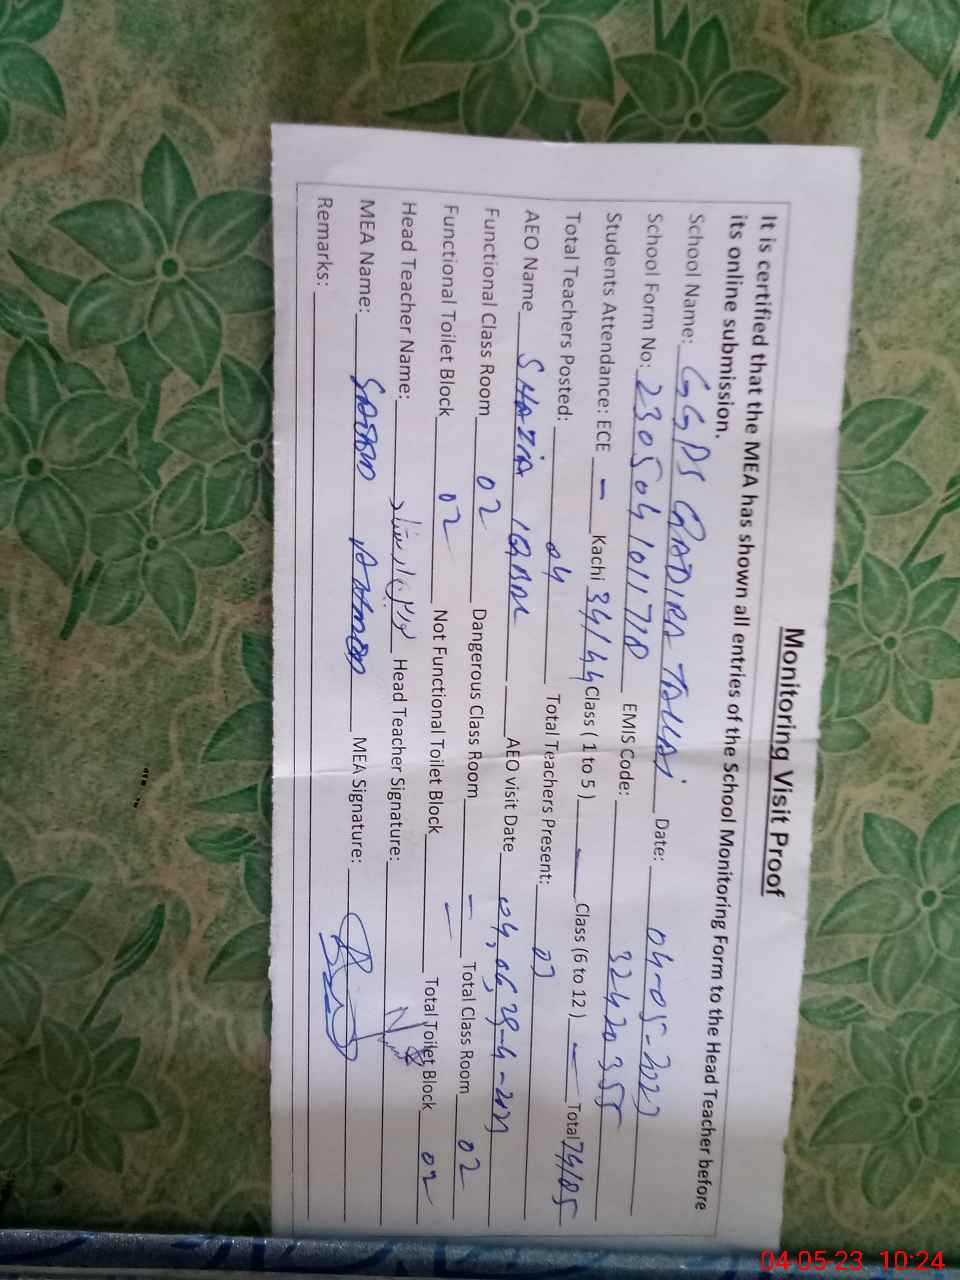 Monitoring Visit Proof
It is certified that the MEA has shown all entries of the School Monitoring Form to the Head Teacher before
its online submission.
School Name: GGPS QADIRA Date: 04-05-2023
School Form No: EMIS Code: 32420355
Students Attendance: ECE - Kachi 34/44 Class ( 1 to 5 ) - Class (6 to 12 ) - Total
Total Teachers Posted: 04 Total Teachers Present: 03
AEO Name SHAZIA IQBAL AEO visit Date
Functional Class Room 02 Dangerous Class Room - Total Class Room 02
Functional Toilet Block 02 Not Functional Toilet Block - Total Toilet Block 02
Head Teacher Name: Head Teacher Signature:
MEA Name: SAJJAD AHMAD MEA Signature:
Remarks:
04-05-23 10:24